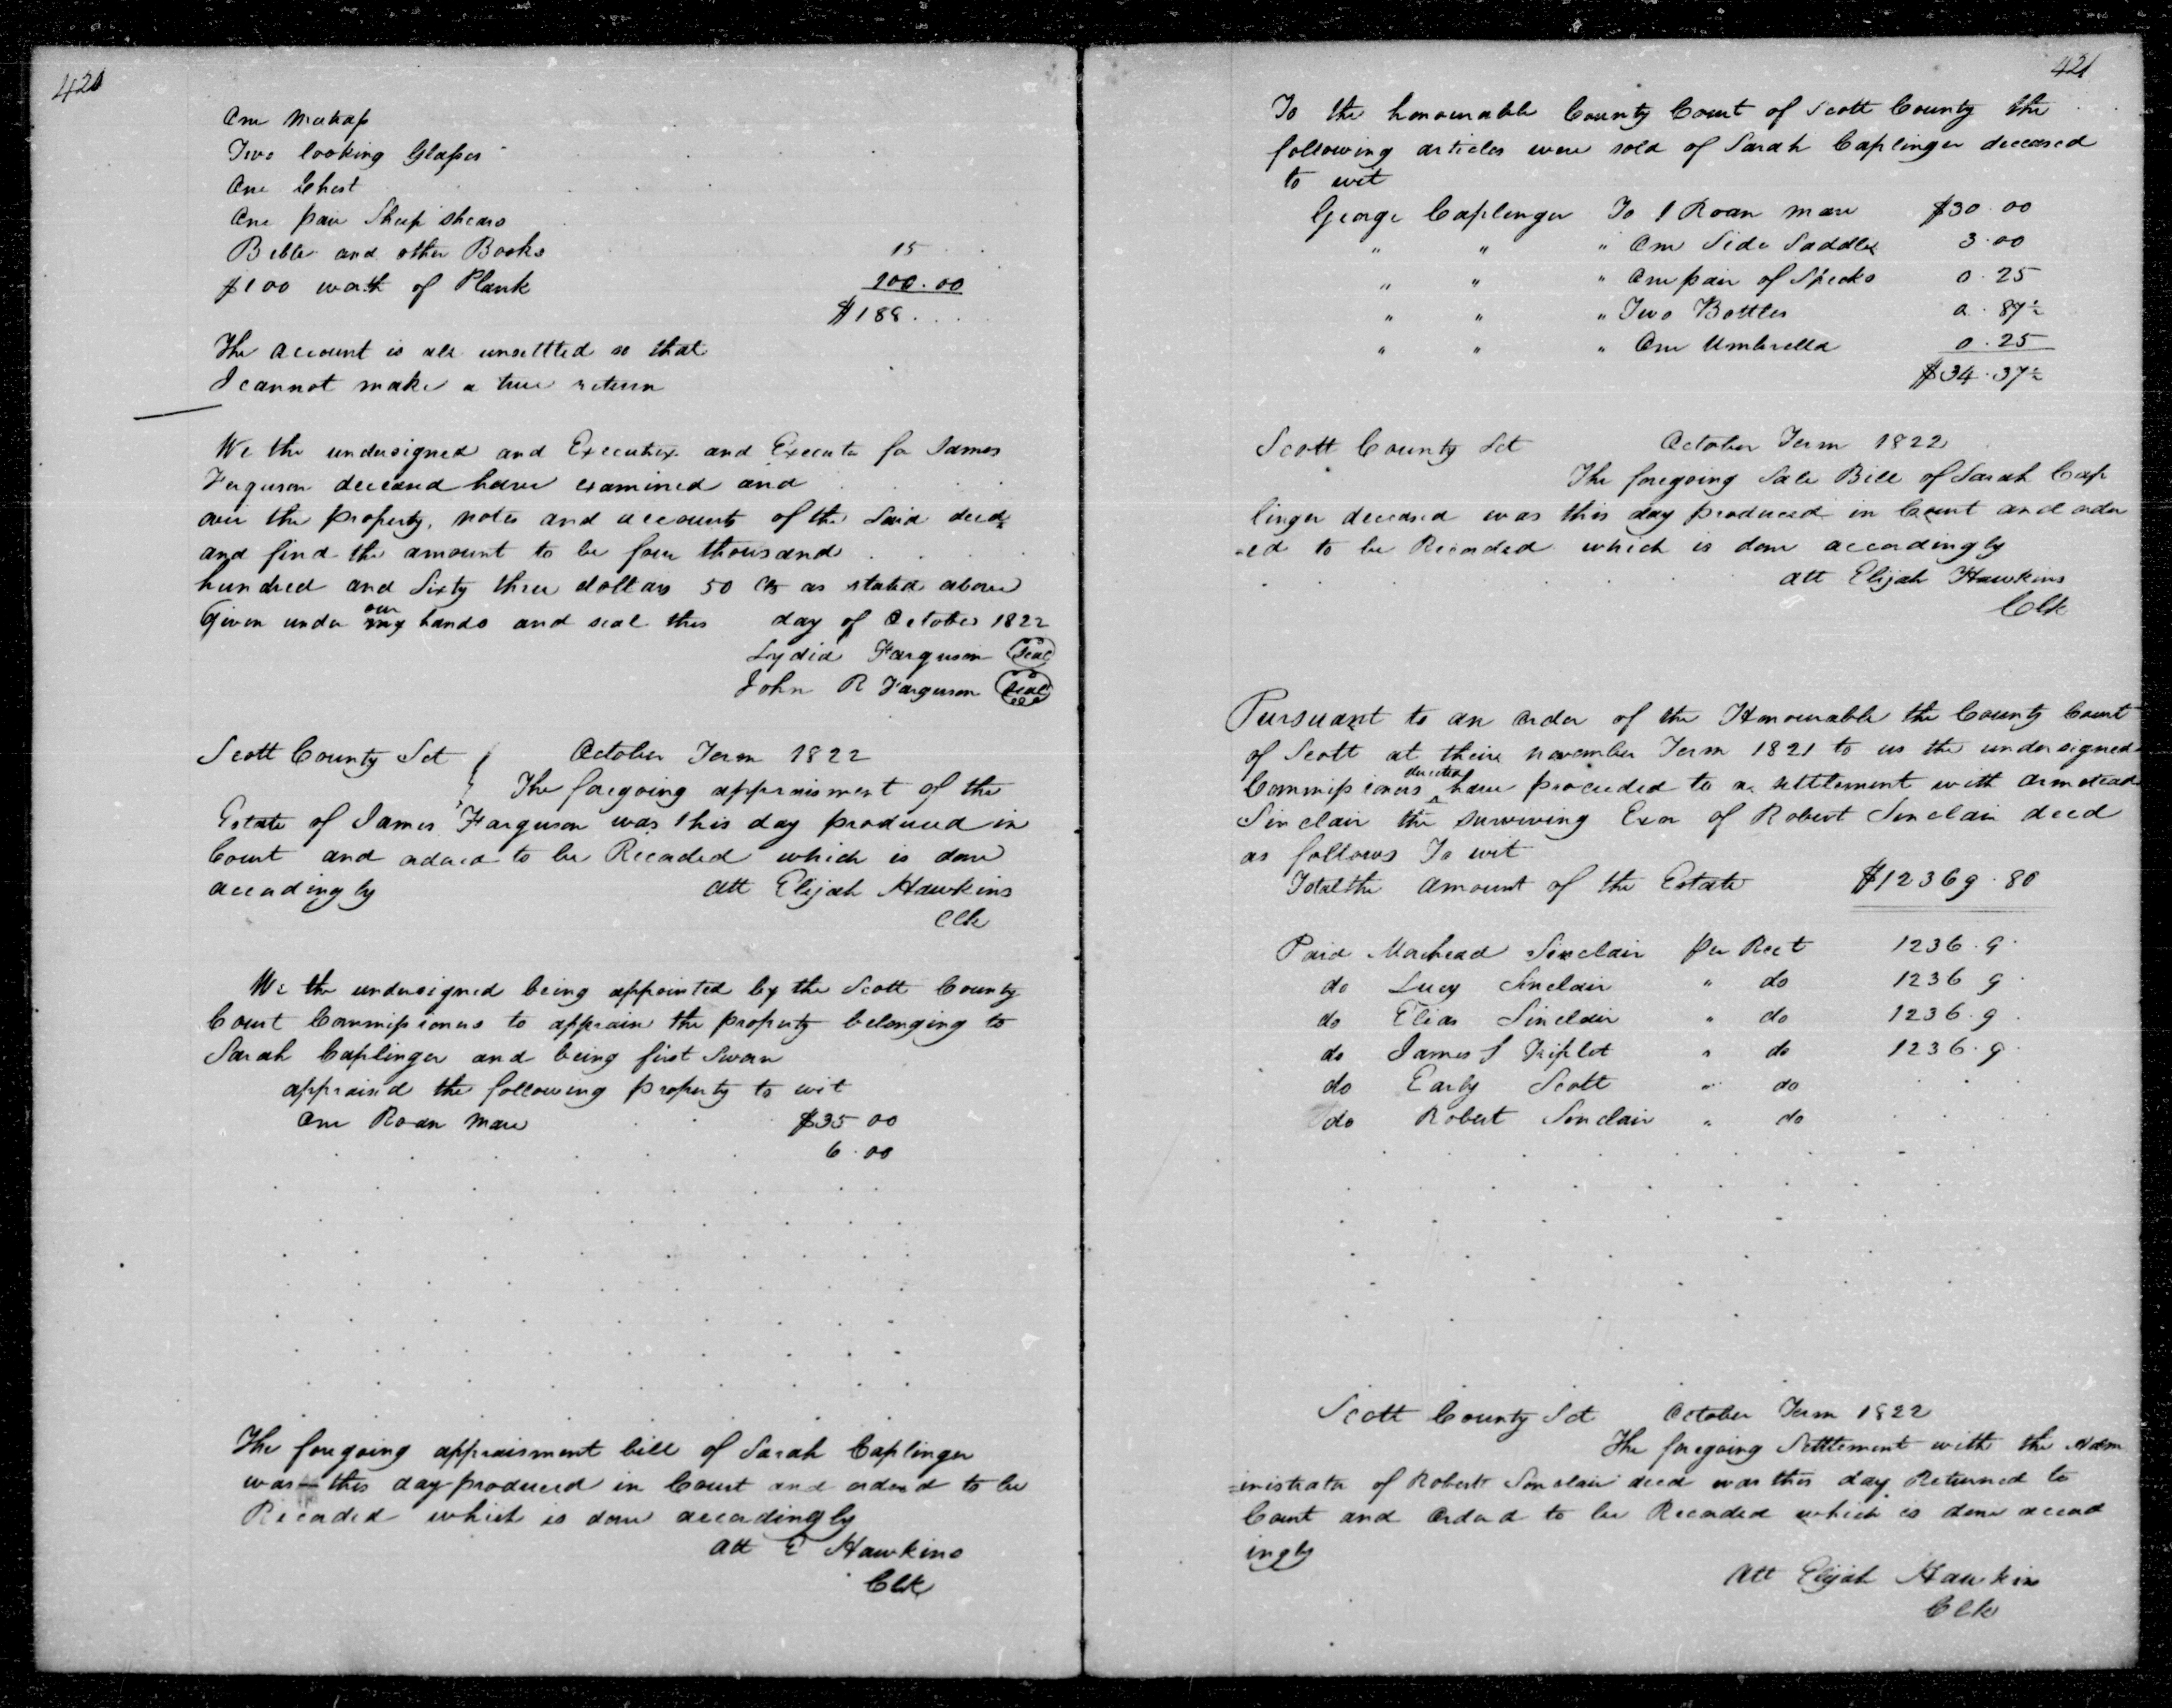 420
One Mattrass
Two looking Glasses
One Chest
One pair Sheep shears
Bible and other Books 15
$100 worth of Plank 100.00
$188...
The account is all unsettled so that
I cannot make a true return
We the undersigned and Executrix and Executor for James
Ferguson deceased have examined and . . . .
over the property, notes and accounts of the said decd
and find the amount to be four thousand . . . .
hundred and Sixty three dollars 50 cts as stated above
Given under my our hands and seal this day of October 1822
Lydia Farguson Seal
John R Farguson Seal
Scott County Sct October Term 1822
The foregoing appraisment of the
Estate of James Farguson was this day produced in
Court and ordered to be Recorded which is done
accordingly att Elijah Hawkins
Clk
We the undersigned being appointed by the Scott County
Court Commissioners to appraise the property belonging to
Sarah Caplinger and being first Sworn
appraised the following property to wit
One Roan Mare $35 00
6.00
The foregoing appraisment bill of Sarah Caplinger
was this day produced in Court and ordered to be
Recorded which is done accordingly
Att E Hawkins
Clk
421
To the honourable County Court of Scott County the
following articles were sold of Sarah Caplinger deceased
to wit
George Caplinger To 1 Roan mare $30.00
" " " One Side Saddle 3.00
" " " One pair of Specks 0.25
" " " Two Bottles 0.87½
" " " One Umbrella 0.25
$34.37½
Scott County Sct October Term 1822
The foregoing Sale Bill of Sarah Cap
linger deceased was this day produced in Court and order
=ed to be Recorded which is done accordingly
att Elijah Hawkins
Clk
Pursuant to an order of the Honourable the County Court
of Scott at their November Term 1821 to us the undersigned
Commissioners directed have proceeded to a settlement with Armstead
Sinclair the surviving Exor of Robert Sinclair decd
as follows To wit
Total the amount of the Estate $12369.80
Paid Morehead Sinclair per Rect 1236.9.
do Lucy Sinclair " do 1236 9.
do Elias Sinclair " do 1236.9.
do James S Triplet " do 1236.9.
do Early Scott " do . . .
do Robert Sinclair " do . . .
Scott County Sct October Term 1822
The foregoing Settlement with the Adm
=inistrator of Robert Sinclair decd was this day Returned to
Court and Ordered to be Recorded which is done accord
ingly
Att Elijah Hawkins
Clk